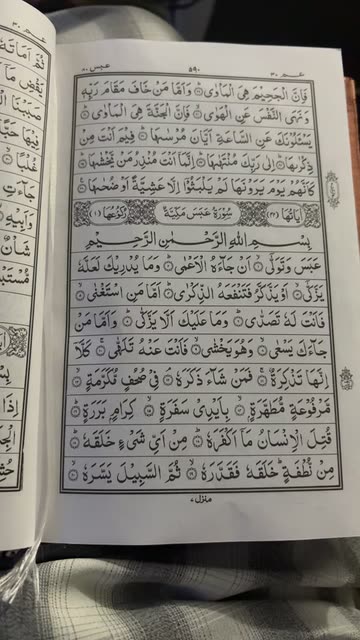 عبس ٨٠
٥٩٠
عم ٣٠
فَاِنَّ الْجَحِيْمَ هِيَ الْمَاْوٰى ۞ وَاَمَّا مَنْ خَافَ مَقَامَ رَبِّهٖ
وَنَهَى النَّفْسَ عَنِ الْهَوٰى ۞ فَاِنَّ الْجَنَّةَ هِيَ الْمَاْوٰى ۞
يَسْـَٔلُوْنَكَ عَنِ السَّاعَةِ اَيَّانَ مُرْسٰىهَا ۞ فِيْمَ اَنْتَ مِنْ
ذِكْرٰىهَا ۞ اِلٰى رَبِّكَ مُنْتَهٰىهَا ۞ اِنَّمَا اَنْتَ مُنْذِرُ مَنْ يَّخْشٰىهَا ۞
كَاَنَّهُمْ يَوْمَ يَرَوْنَهَا لَمْ يَلْبَثُوْٓا اِلَّا عَشِيَّةً اَوْ ضُحٰىهَا ۞
اٰيَاتُهَا (٤٢) سُوْرَةُ عَبَسَ مَكِّيَّةٌ رُكُوْعُهَا (١)
بِسْمِ اللّٰهِ الرَّحْمٰنِ الرَّحِيْمِ
عَبَسَ وَتَوَلّٰىٓ ۞ اَنْ جَآءَهُ الْاَعْمٰى ۞ وَمَا يُدْرِيْكَ لَعَلَّهٗ
يَزَّكّٰىٓ ۞ اَوْ يَذَّكَّرُ فَتَنْفَعَهُ الذِّكْرٰى ۞ اَمَّا مَنِ اسْتَغْنٰى ۞
فَاَنْتَ لَهٗ تَصَدّٰى ۞ وَمَا عَلَيْكَ اَلَّا يَزَّكّٰى ۞ وَاَمَّا مَنْ
جَآءَكَ يَسْعٰى ۞ وَهُوَ يَخْشٰى ۞ فَاَنْتَ عَنْهُ تَلَهّٰى ۞ كَلَّآ
اِنَّهَا تَذْكِرَةٌ ۞ فَمَنْ شَآءَ ذَكَرَهٗ ۞ فِيْ صُحُفٍ مُّكَرَّمَةٍ ۞
مَّرْفُوْعَةٍ مُّطَهَّرَةٍ ۞ بِاَيْدِيْ سَفَرَةٍ ۞ كِرَامٍ بَرَرَةٍ ۞
قُتِلَ الْاِنْسَانُ مَآ اَكْفَرَهٗ ۞ مِنْ اَيِّ شَيْءٍ خَلَقَهٗ ۞
مِنْ نُّطْفَةٍ خَلَقَهٗ فَقَدَّرَهٗ ۞ ثُمَّ السَّبِيْلَ يَسَّرَهٗ ۞
منزل ٧